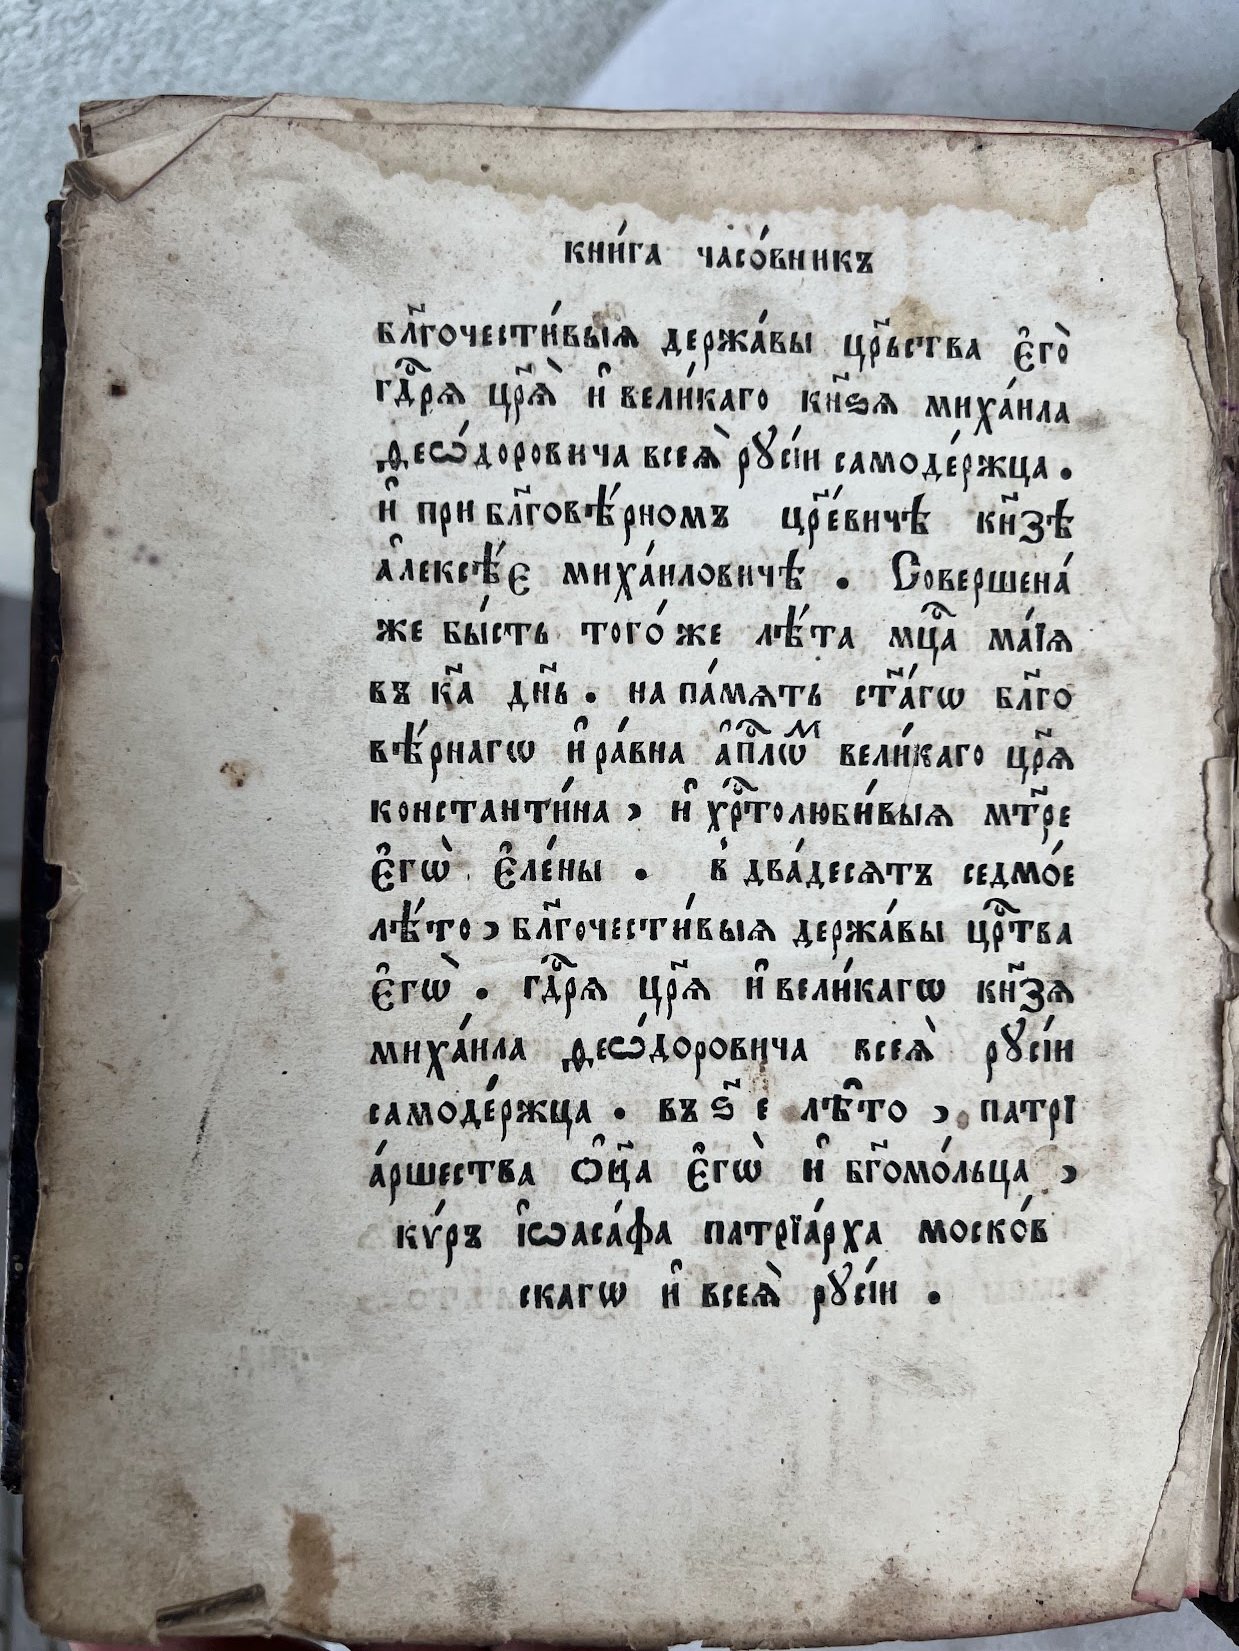 кни́га часо́вникъ
бл҃гочести́выѧ держа́вы цр҃ьства є҆го̀
гдⷭ҇рѧ цр҃ѧ̀ и҆ вели́каго кн҃ѕѧ миха́ила
ѳеѡ́доровича всеѧ̀ рꙋсі́и самоде́ржца .
и҆ при бл҃говѣ́рномъ цр҃е́вичѣ кн҃зѣ
а҆леѯѣ́є миха́иловичѣ . Соверше́на́
же бы́сть того́ же лѣ́та мцⷭ҇а ма́їѧ
въ к҃а дн҃ь . на па́мѧть ст҃а́гѡ бл҃го
вѣ́рнагѡ и҆ ра́вна а҆пⷭ҇лѡⷨ вели́каго цр҃ѧ
константи́на , и҆ хрⷭ҇толюби́выѧ мт҃ре
є҆гѡ̀ є҆ле́ны . в два́десѧтъ седмо́е
лѣ́то , бл҃гочести́выѧ держа́вы црⷭ҇тва
є҆гѡ̀ . гдⷭ҇рѧ цр҃ѧ и҆ вели́кагѡ кн҃зѧ
миха́ила ѳеѡ́доровича всеѧ̀ рꙋсі́и
самоде́ржца . въ ѕ҃ е лѣ̑то , патрї
а́ршества ѻ҆ц҃а є҆гѡ̀ и҆ бг҃омо́льца ,
кѵ́ръ і҆ѡаса́фа патрїа́рха моско́в
скагѡ и҆ всеѧ̀ рꙋсі́и .